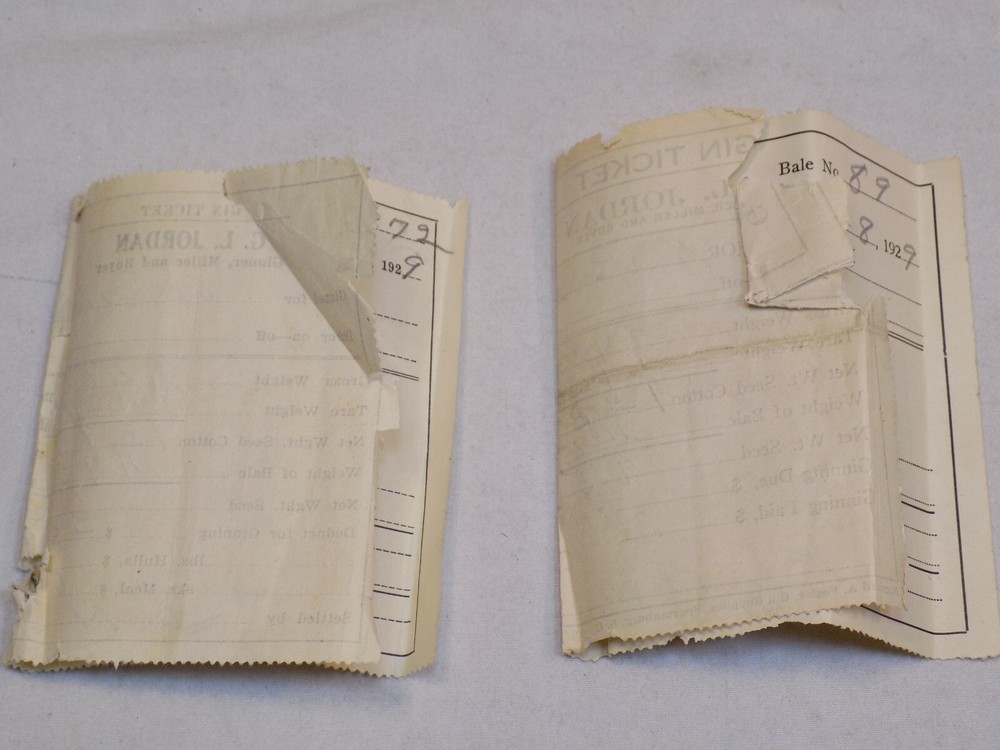 GIN TICKET
G. L. JORDAN
Ginner, Miller and Buyer
Ginned for
for on—off
Gross Weight
Tare Weight
Net Wght. Seed Cotton
Weight of Bale
Net Wght. Seed
Deduct for Ginning $
lbs. Hulls, $
Meal, $
Settled by
72
1929
GIN TICKET
L. JORDAN
MILLER AND BUYER
Weight
Tare Weight
Net Wt. Seed Cotton
Weight of Bale
Net Wt. Seed
Ginning Due, $
Ginning Paid, $
Bale No. 89
8, 1929